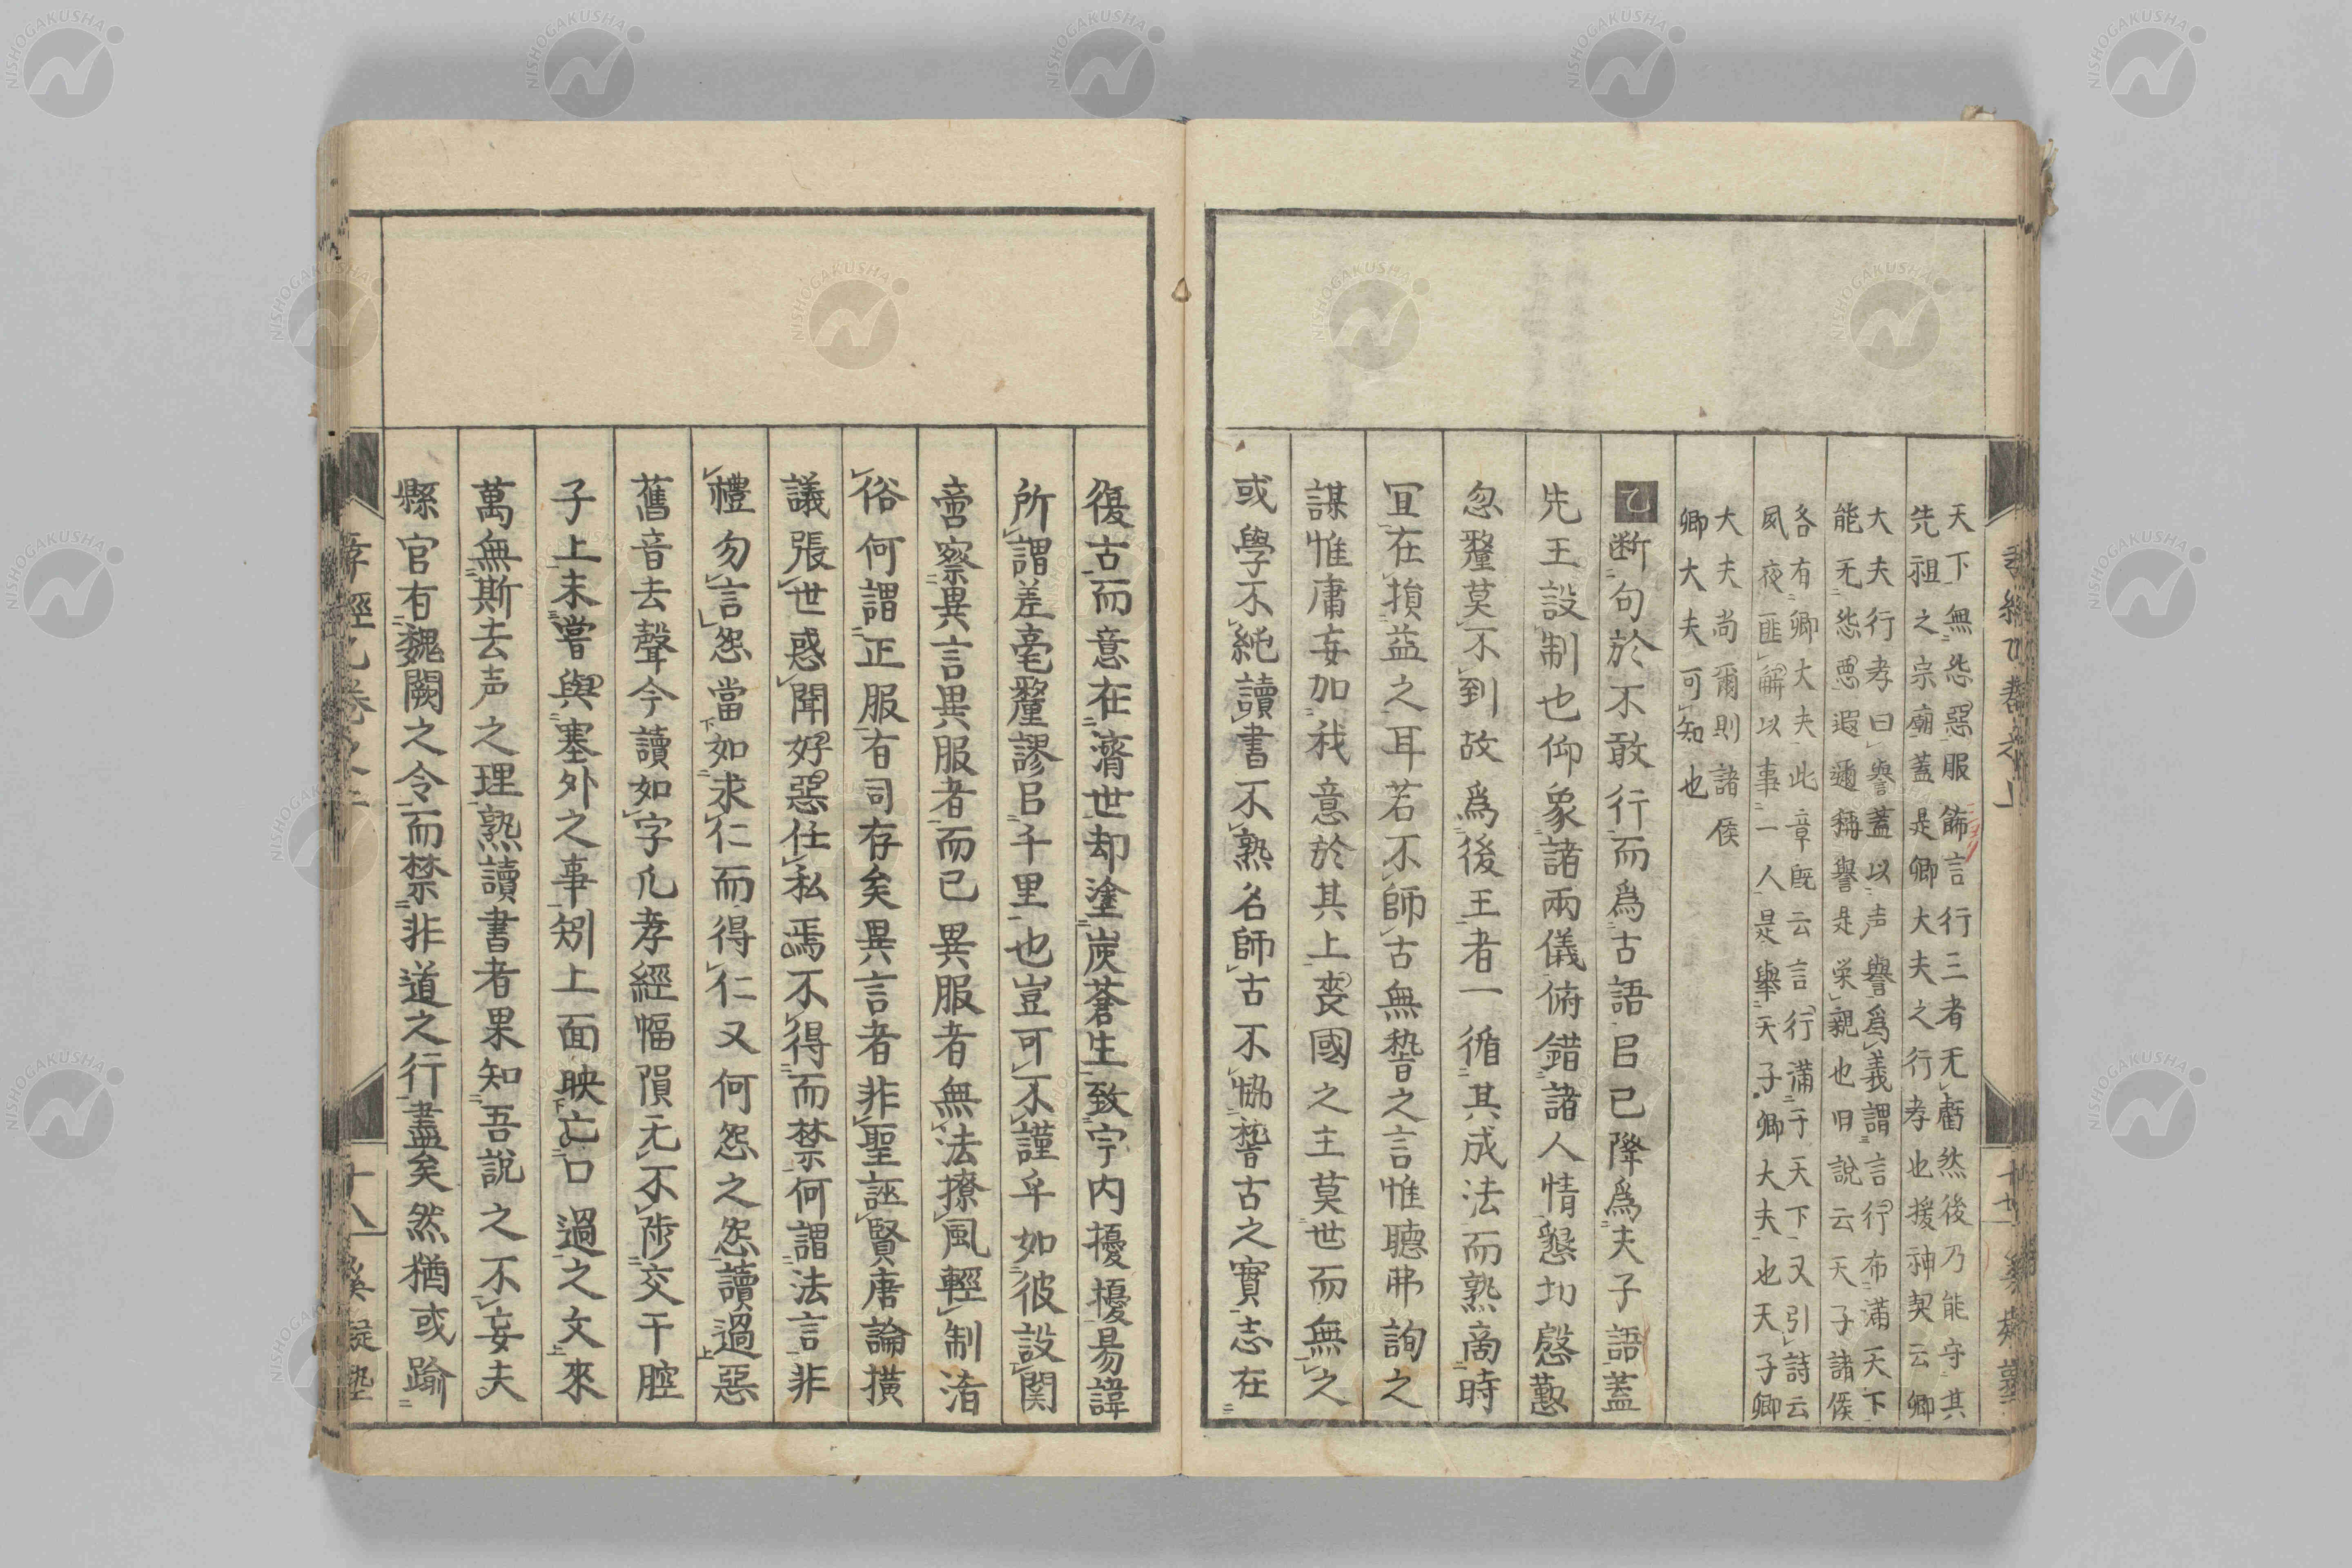 天下無怨惡服飾言行三者无虧然後乃能守其
先祖之宗廟蓋是卿大夫之行孝也援神契云卿
大夫行孝曰譽蓋以声譽爲義謂言行布滿天下
能无怨惡遐邇稱譽是榮親也旧說云天子諸侯
各有卿大夫此章既云言行滿于天下又引詩云
夙夜匪解以事一人是舉天子卿大夫也天子卿
大夫尚爾則諸侯
卿大夫可知也
乙断句於不敢行而爲古語㠯已降爲夫子語蓋
先王設制也仰象諸兩儀俯錯諸人情懇切慇懃
忽釐莫不到故爲後王者一循其成法而熟啇時
宜在損益之耳若不師古無稽之言惟聽弗詢之
謀惟庸妄加我意於其上喪國之主莫世而無之
或學不純讀書不熟名師古不協稽古之實志在
復古而意在濟世却塗炭蒼生致宇内擾擾昜諱
所謂差毫釐謬㠯千里也豈可不謹乎如彼設関
啻察異言異服者而已異服者無法撩風輕制淆
俗何謂正服有司存矣異言者非聖誣賢唐論橫
議張世惑聞好惡任私焉不得而禁何謂法言非
禮勿言怨當如求仁而得仁又何怨之怨讀過惡
舊音去聲今讀如字凡孝經幅隕无不陟交干腔
子上未嘗與塞外之事矧上面映亡口過之文來
萬無斯去声之理熟讀書者果知吾說之不妄夫
縣官有魏闕之令而禁非道之行盡矣然猶或踰
十八
NISHOGAKUSHA